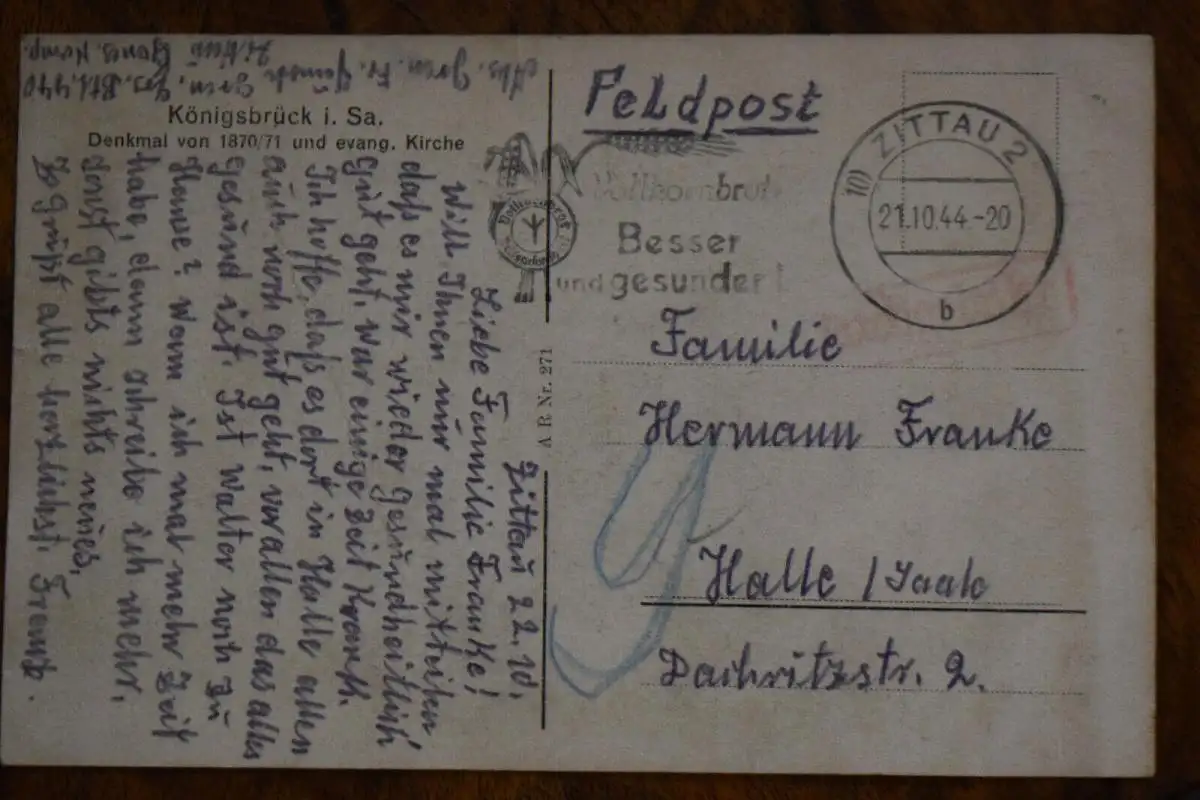 Abs. Gren. Fr.
Gren. Ers. Btl. 440
Zittau Genes. Komp.
Königsbrück i. Sa.
Denkmal von 1870/71 und evang. Kirche
Zittau 22.10.
Liebe Familie Franke!
Will Ihnen nur mal mitteilen
daß es mir wieder gesundheitlich
gut geht, war einige Zeit krank.
Ich hoffe, daß es dort in Halle allen
auch noch gut geht, vorallen das alles
gesund ist. Ist Walter noch zu
Hause? Wann ich mal mehr Zeit
habe, dann schreibe ich mehr,
sonst gibts nichts neues,
Es grüßt alle herzlichst.
A R Nr. 271
Feldpost
Vollkornbrot
Besser
und gesunder!
10) ZITTAU 2
21.10.44.-20
b
Familie
Hermann Franke
Halle / Saale
Dachritzstr. 2.